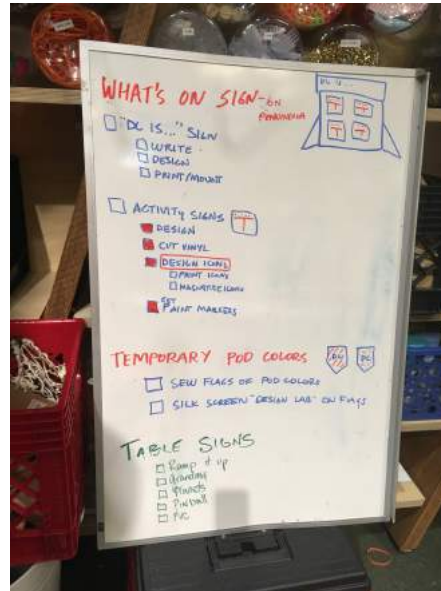 WHAT'S ON SIGN-ON
DC IS...
"DC IS..." SIGN
WRITE
DESIGN
PRINT/MOUNT
ACTIVITY SIGNS
DESIGN
CUT VINYL
DESIGN ICONS
PRINT ICONS
MAGNETIZE ICONS
GET
PAINT MARKERS
TEMPORARY POD COLORS
SEW FLAGS OF POD COLORS
SILK SCREEN "DESIGN LAB" ON FLAGS
TABLE SIGNS
Ramp it up
Pinball
PVC